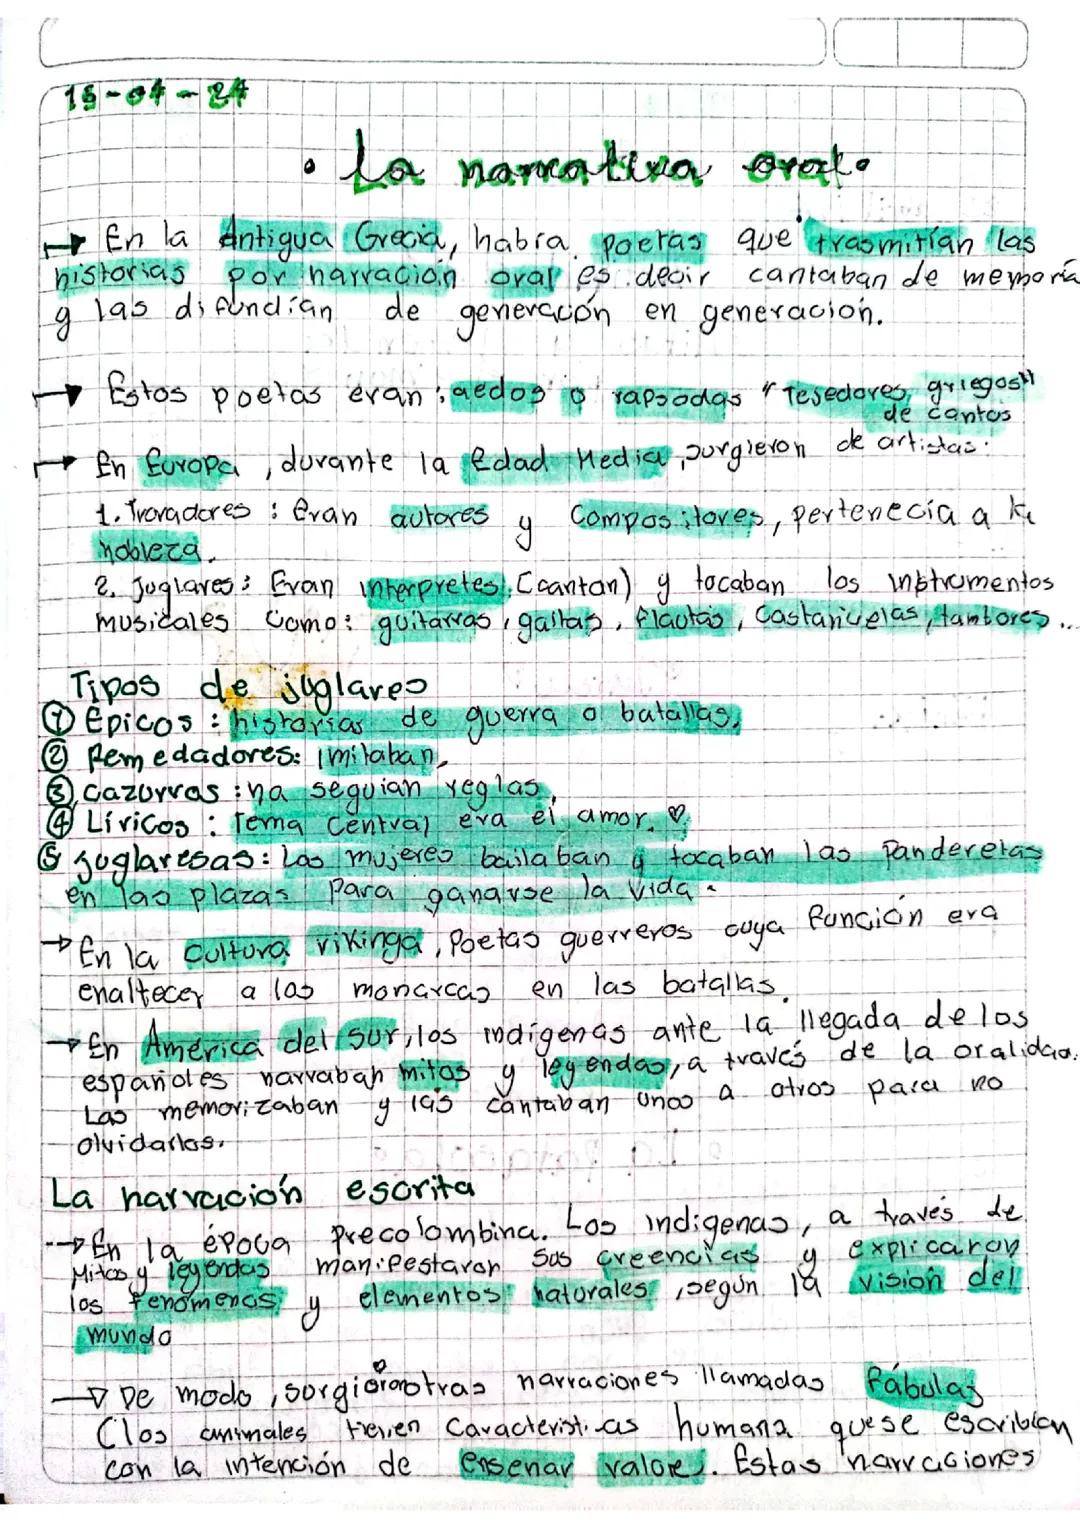 15-04-24
• La narrativa oral •
→ En la Antigua Grecia, habia poetas que trasmitían las
historias por narración oral es decir cantaban de memoria
y las difundían de generación en generación.
→ Estos poetas eran : aedos o rapsodas "Tesedores griegos"
de cantos
→ En Europa, durante la Edad Media, surgieron de artistas:
1. Trovadores : Eran autores y Compositores, pertenecía a la
nobleza.
2. Juglares: Eran interpretes (cantan) y tocaban los instrumentos
musicales Como: guitarras, gaitas, flautas, Castañuelas, tambores...
Tipos de juglares
① Épicos : historias de guerra o batallas,
② Remedadores: Imitaban,
③ cazurros : no seguian reglas,
④ Líricos : Tema Central era el amor. ♡
⑤ juglaresas: Las mujeres bailaban y tocaban las Panderetas
en las plazas para ganarse la vida.
→ En la Cultura vikinga, Poetas guerreros cuya función era
enaltecer a las monarcas en las batallas.
→ En América del Sur, los indígenas ante la llegada de los
españoles narraban mitos y leyendas, a través de la oralidad.
Las memorizaban y las cantaban unos a otros para no
olvidarlas.
La narración escrita
→ En la época precolombina. Los indigenas, a través de
Mitos y leyendas manifestaron sus creencias y explicaron
los fenómenos y elementos naturales, según la visión del
mundo
→ De modo, surgieron otras narraciones llamadas Fábulas
(los animales tienen Caracteristicas humana que se escribían
con la intención de enseñar valores. Estas narraciones